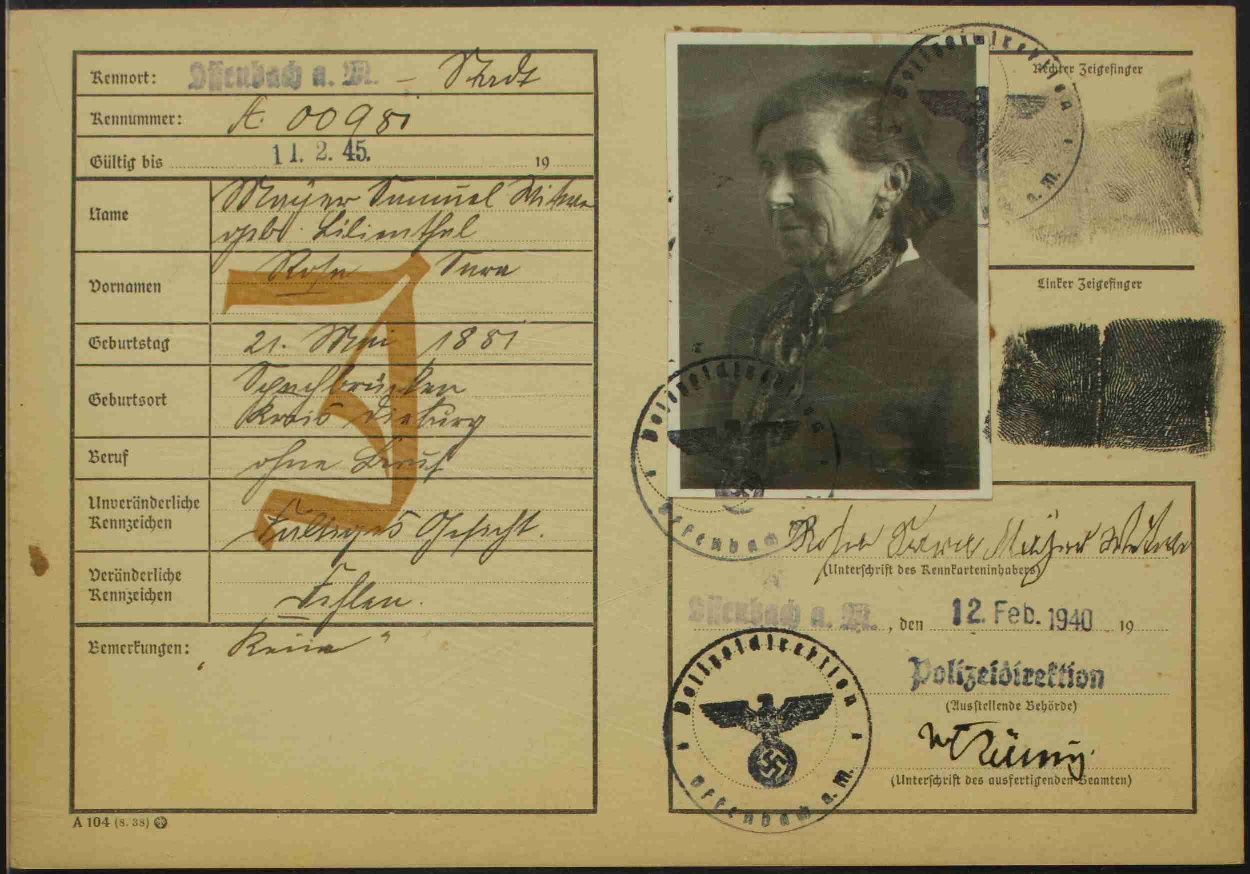 Kennort: Offenbach a. M. – Stadt
Kennummer: A 00981
Gültig bis 11. 2. 45. 19
Name Mayer Samuel Witwe
geb. Lilienthal
Vornamen Rosa Sara
Geburtstag 21. Mai 1881
Geburtsort Spachbrücken
Kreis Dieburg
Beruf ohne Beruf
Unveränderliche
Kennzeichen faltiges Gesicht.
Veränderliche
Kennzeichen fehlen.
Bemerkungen: „Keine“
A 104 (8. 38)
J
Rechter Zeigefinger
Linker Zeigefinger
Polizeidirektion
Offenbach a. M.
Polizeidirektion
Offenbach
Rosa Sara Mayer Witwe
(Unterschrift des Kennkarteninhabers)
Offenbach a. M. , den 12. Feb. 1940 19
Polizeidirektion
(Ausstellende Behörde)
(Unterschrift des ausfertigenden Beamten)
Polizeidirektion
Offenbach a. M.